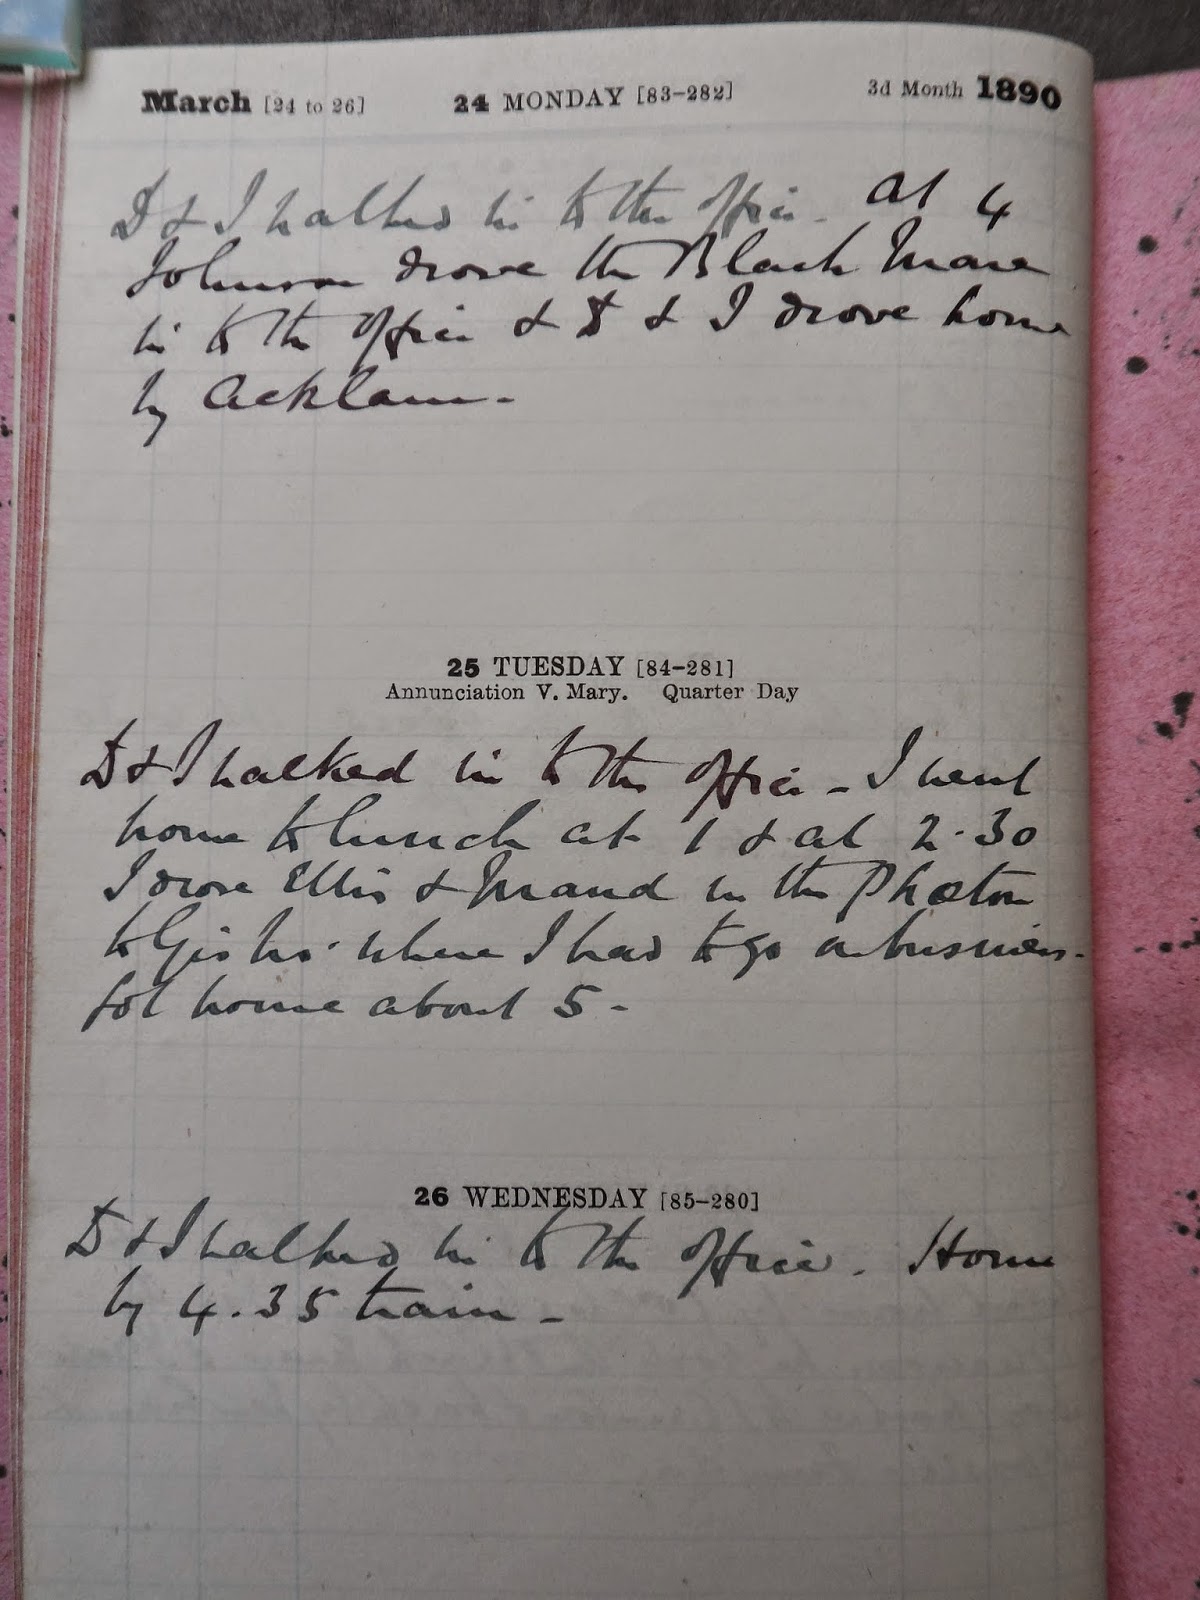 March [24 to 26] 24 MONDAY [83-282] 3d Month 1890
D & I walked in to the office. At 4
Johnson drove the Black Mare
in to the office & D & I drove home
by Acklam.
25 TUESDAY [84-281]
Annunciation V. Mary. Quarter Day
D & I walked in to the office - I went
home to lunch at 1 & at 2.30
I drove Ellis & Maud in the Phæton
to where I had to go on business.
Got home about 5 -
26 WEDNESDAY [85-280]
D & I walked in to the office. Home
by 4.35 train -